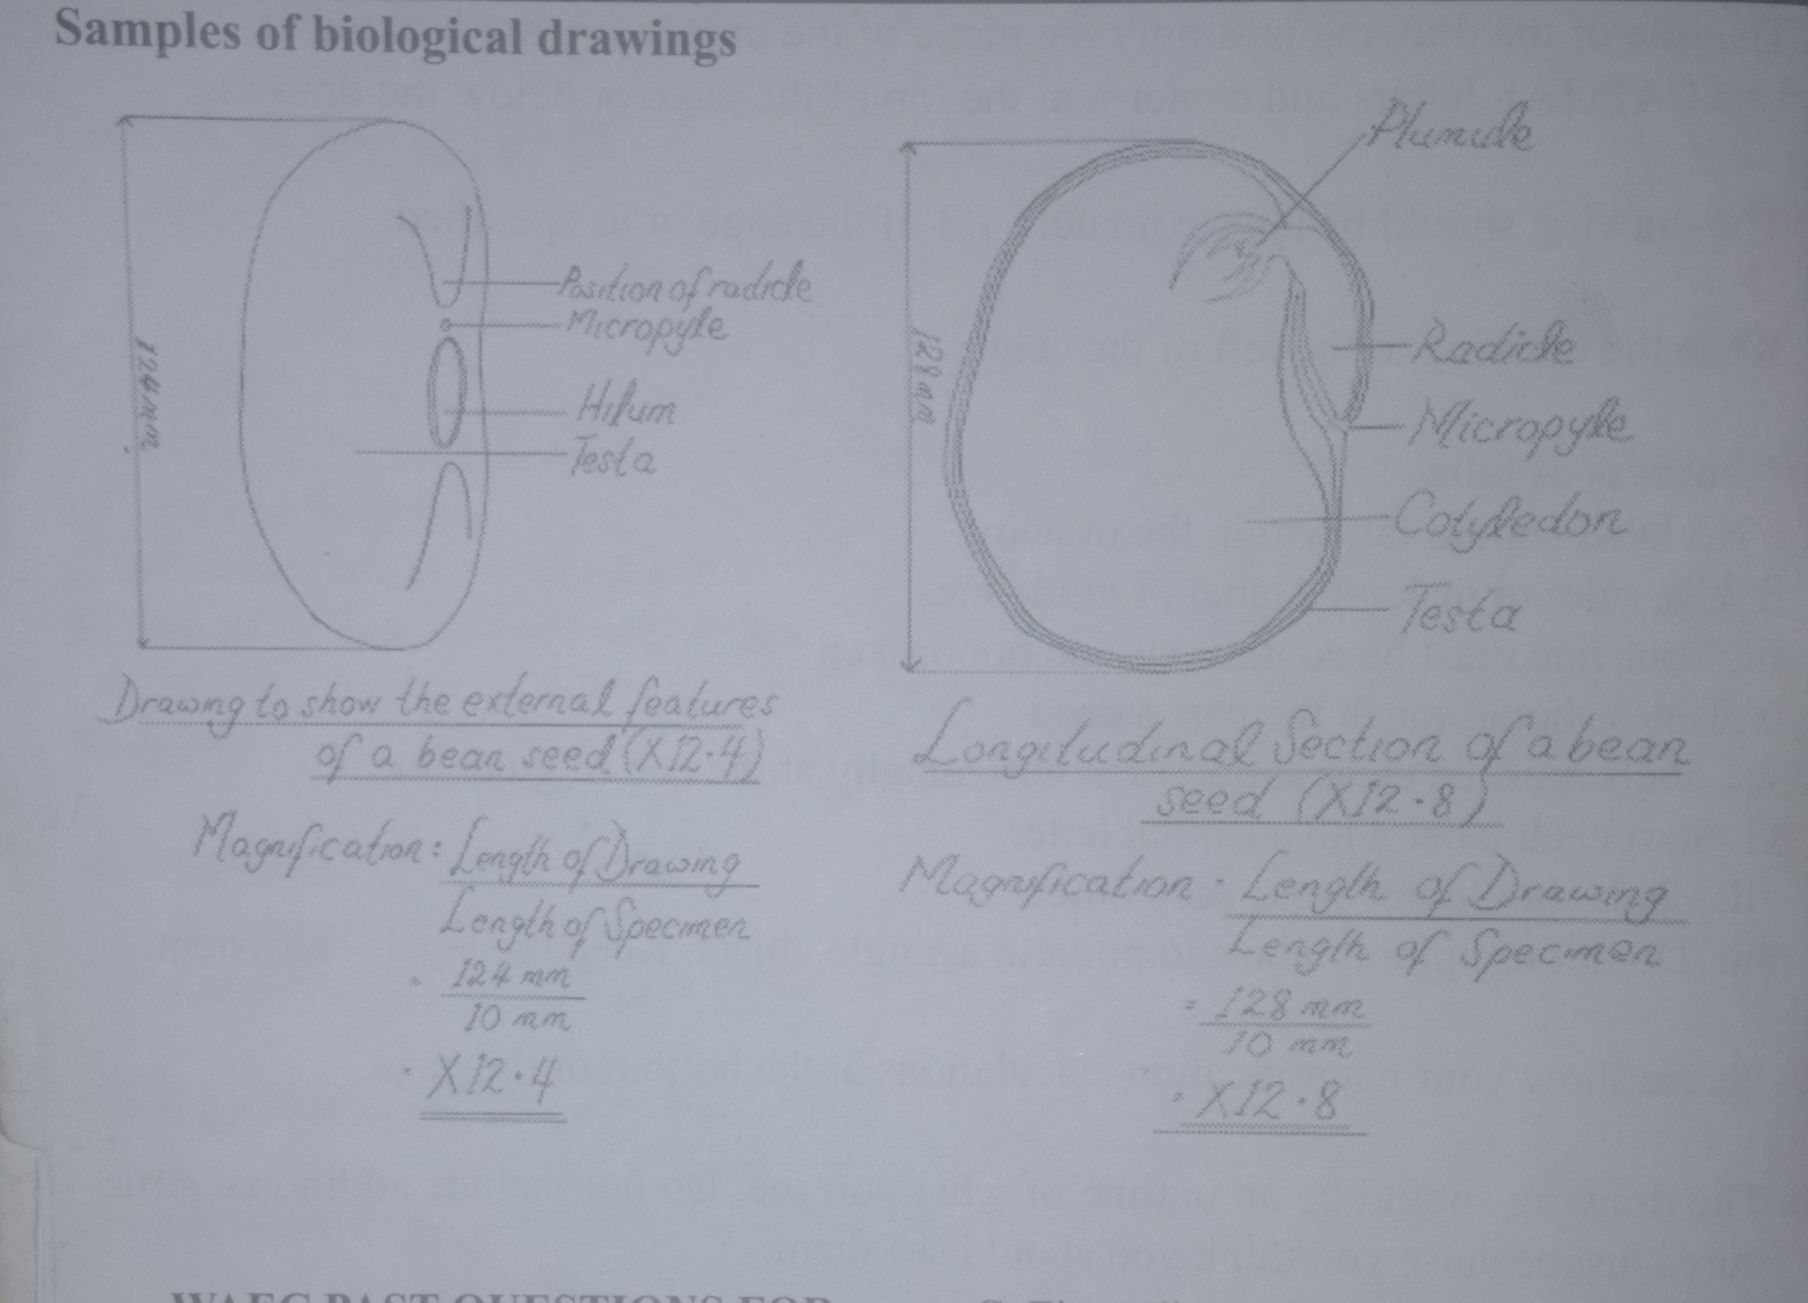 Samples of biological drawings
124mm
Position of radicle
Micropyle
Hilum
Testa
Drawing to show the external features
of a bean seed (X12·4)
Magnification: Length of Drawing
Length of Specimen
124 mm
10 mm
X12·4
Plumule
128mm
Radicle
Micropyle
Cotyledon
Testa
Longitudinal Section of a bean
seed (X12·8)
Magnification · Length of Drawing
Length of Specimen
= 128 mm
10 mm
X12·8
WAEC PAST QUESTIONS FOR